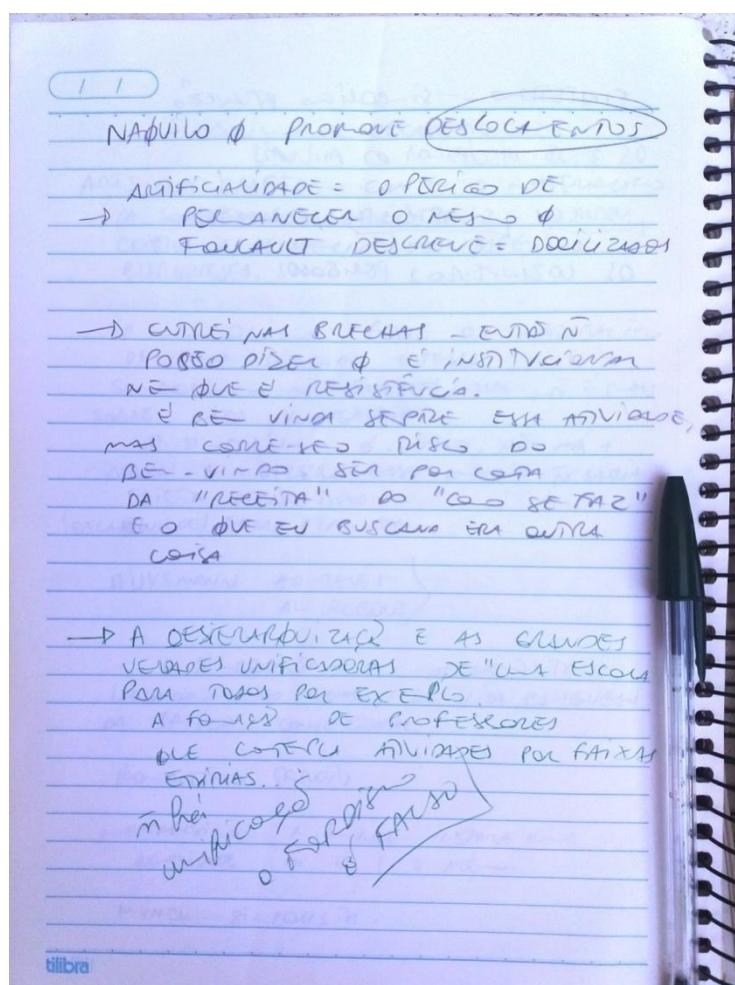 / /
NAQUILO Φ PROMOVE DESLOCAMENTOS
ARTIFICIALIDADE = O PERIGO DE
→ PERMANECER O MESMO Φ
FOUCAULT DESCREVE = DOCILIZADOS
→ ENTREI NAS BRECHAS - ENTÃO Ñ
POSSO DIZER Φ É INSTITUCIONAL
NEM QUE É RESISTÊNCIA.
É BEM VINDA SEMPRE ESSA ATIVIDADE,
MAS CORRE-SE O RISCO DO
BEM-VINDO SER POR CONTA
DA "RECEITA" DO "COMO SE FAZ"
E O QUE EU BUSCAVA ERA OUTRA
COISA
→ A DESIERARQUIZAÇÃO E AS GRANDES
VERDADES UNIFICADORAS DE "UMA ESCOLA
PARA TODOS POR EXEMPLO.
A FORMAÇÃO DE PROFESSORES
QUE CONTEMPLA ATIVIDADES POR FAIXAS
ETÁRIAS...
ñ há
unificação
O FORDISMO
É FALSO
tilibra